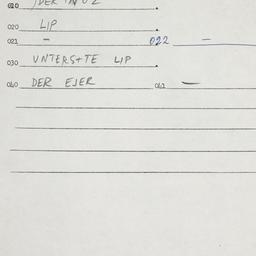 020 LIP
021 – 022 –
030 UNTERSTE LIP
060 DER EJER 061 –